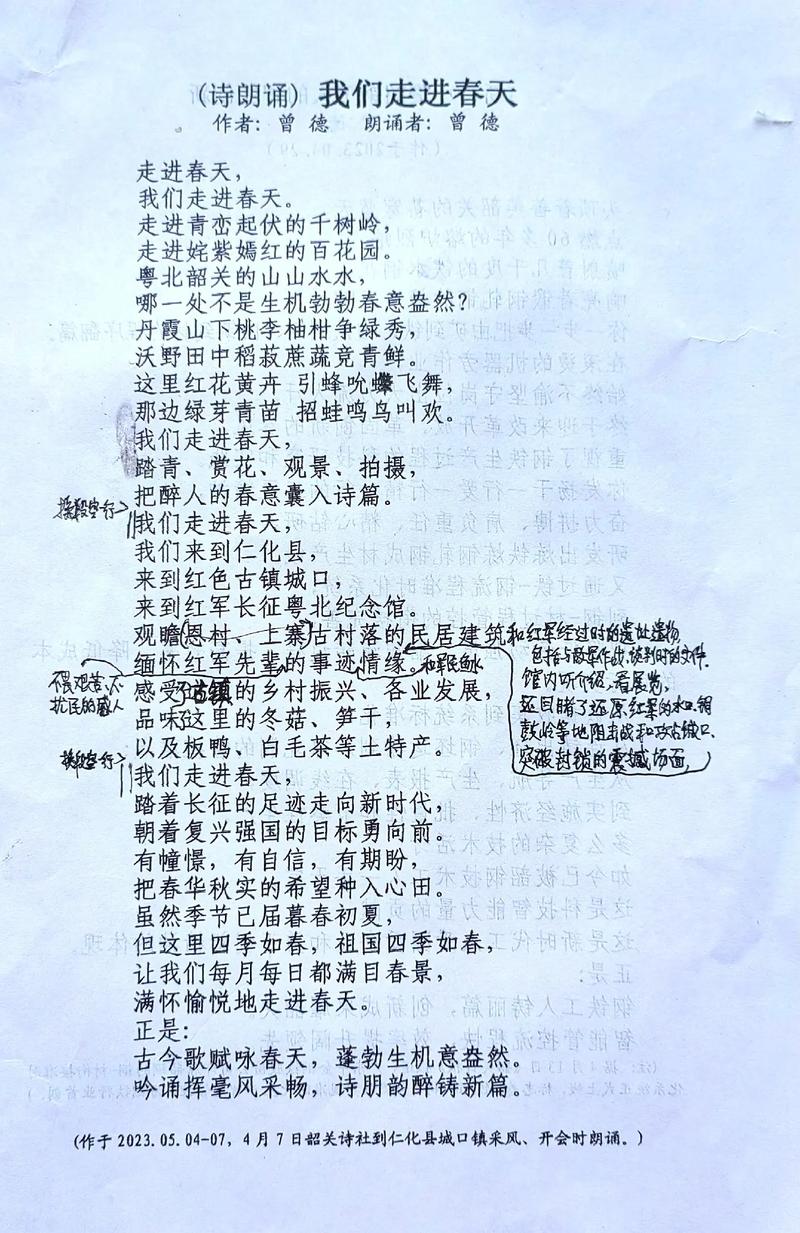 （诗朗诵）我们走进春天
作者：曾 德　朗诵者：曾 德
走进春天，
我们走进春天。
走进青峦起伏的千树岭，
走进姹紫嫣红的百花园。
粤北韶关的山山水水，
哪一处不是生机勃勃春意盎然？
丹霞山下桃李柚柑争绿秀，
沃野田中稻菽蔗蔬竞青鲜。
这里红花黄卉 引蜂吮蝶飞舞，
那边绿芽青苗 招蛙鸣鸟叫欢。
我们走进春天，
踏青、赏花、观景、拍摄，
把醉人的春意囊入诗篇。
换段空行
我们走进春天，
我们来到仁化县，
来到红色古镇城口，
来到红军长征粤北纪念馆。
观瞻(恩村、上寨)古村落的民居建筑和红军经过时的遗址遗物
包括与敌军作战、谈判时的文件、
馆内听介绍、看展览，
还目睹了还原红军的水口、铜
鼓岭等地阻击战和攻占城口、
突破封锁的震撼场面，
缅怀红军先辈的事迹情缘。和军民鱼水
不畏艰苦、
感受了古镇的乡村振兴、各业发展，
品味这里的冬菇、笋干，
以及板鸭、白毛茶等土特产。
换段空行
我们走进春天，
踏着长征的足迹走向新时代，
朝着复兴强国的目标勇向前。
有憧憬，有自信，有期盼，
把春华秋实的希望种入心田。
虽然季节已届暮春初夏，
但这里四季如春，祖国四季如春，
让我们每月每日都满目春景，
满怀愉悦地走进春天。
正是：
古今歌赋咏春天，蓬勃生机意盎然。
吟诵挥毫风采畅，诗朋韵醉铸新篇。
(作于 2023.05.04-07，4 月 7 日韶关诗社到仁化县城口镇采风、开会时朗诵。)